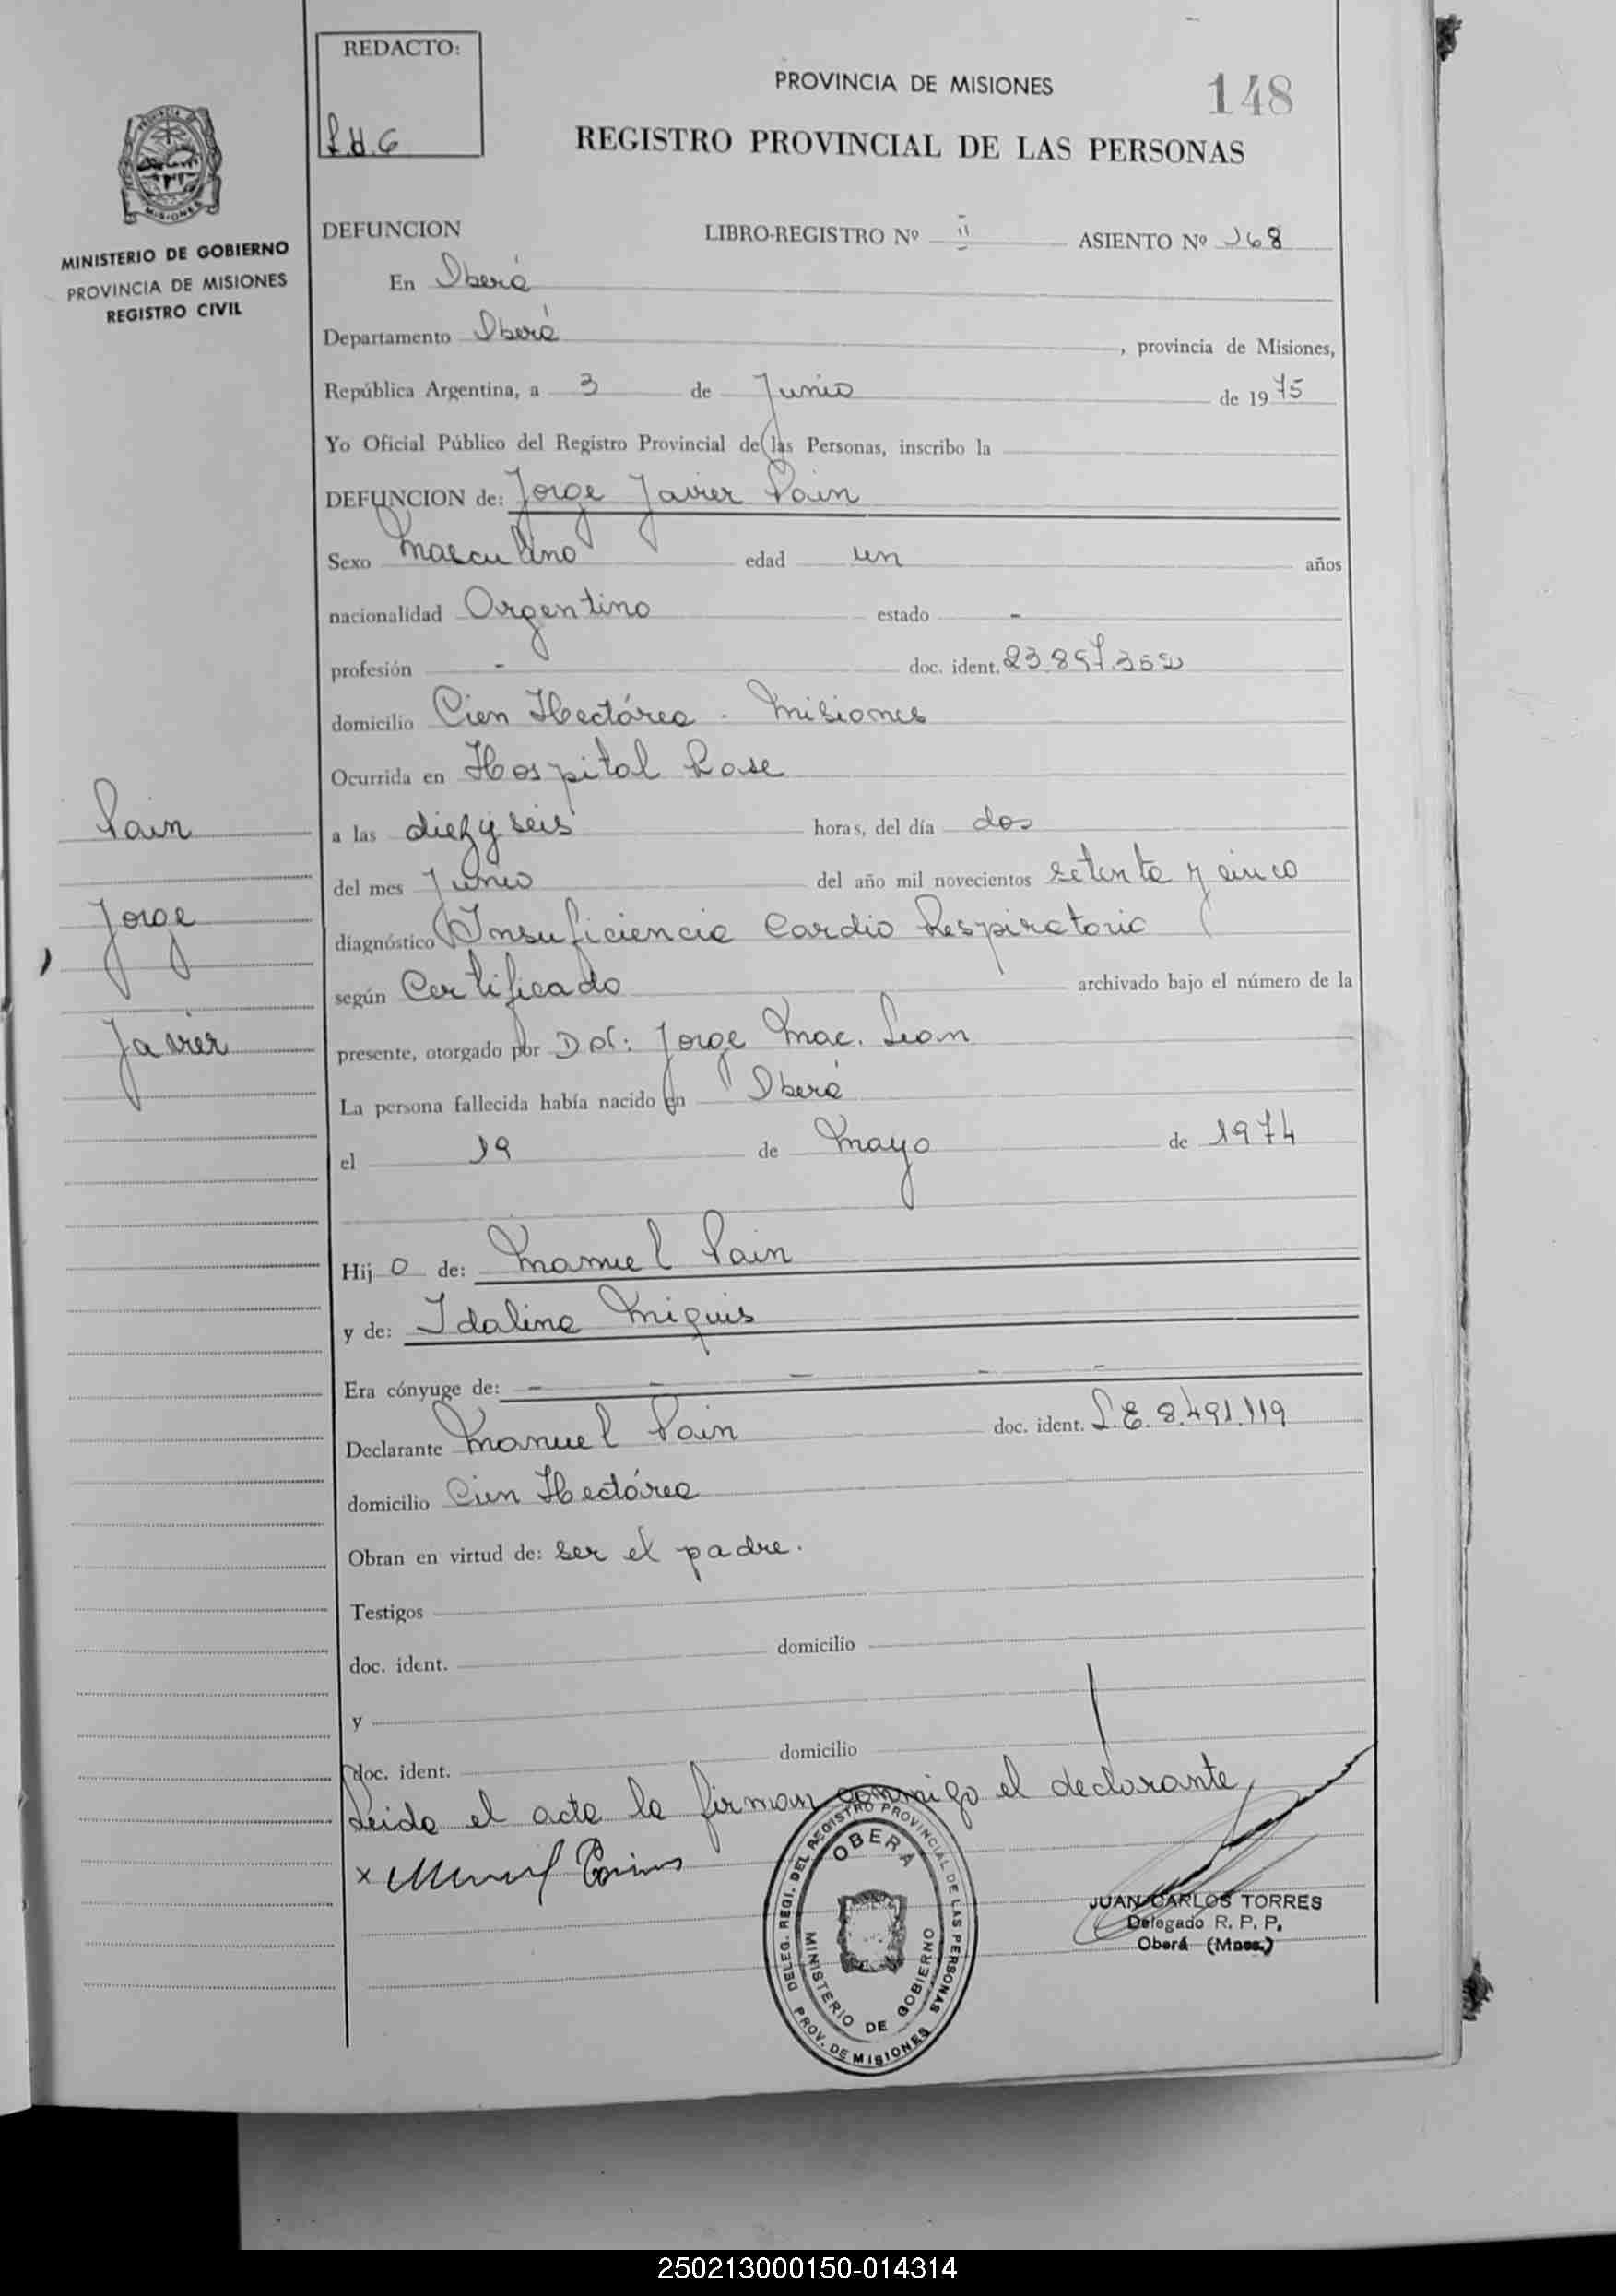 REDACTO:
L.H.G
PROVINCIA DE MISIONES
148
REGISTRO PROVINCIAL DE LAS PERSONAS
MISIONES
MINISTERIO DE GOBIERNO
PROVINCIA DE MISIONES
REGISTRO CIVIL
DEFUNCION LIBRO-REGISTRO Nº II ASIENTO Nº 268
En Oberá
Departamento Oberá, provincia de Misiones,
República Argentina, a 3 de Junio de 1975
Yo Oficial Público del Registro Provincial de las Personas, inscribo la
DEFUNCION de: Jorge Javier Pain
Sexo Masculino edad un años
nacionalidad Argentino estado -
profesión - doc. ident. 23.897.352
domicilio Cien Hectárea - Misiones
Ocurrida en Hospital Base
a las diez y seis horas, del día dos
del mes Junio del año mil novecientos setenta y cinco
diagnóstico Insuficiencia Cardio Respiratoria
según Certificado archivado bajo el número de la
presente, otorgado por Dor: Jorge Mac. Lean
La persona fallecida había nacido en Oberá
el 19 de Mayo de 1974
Hijo de: Manuel Pain
y de: Idalina Miquis
Era cónyuge de: - - - - -
Declarante Manuel Pain doc. ident. L.E. 8.491.119
domicilio Cien Hectárea
Obran en virtud de: ser el padre.
Testigos
doc. ident. domicilio
y
doc. ident. domicilio
Leida el acta la firman conmigo el declarante
x
Pain
Jorge
Javier
DELEG. REGI. DEL REGISTRO PROVINCIAL DE LAS PERSONAS
PROV. DE MISIONES
OBERA
MINISTERIO DE GOBIERNO
JUAN CARLOS TORRES
Delegado R. P. P.
Oberá (Mnes.)
250213000150-014314